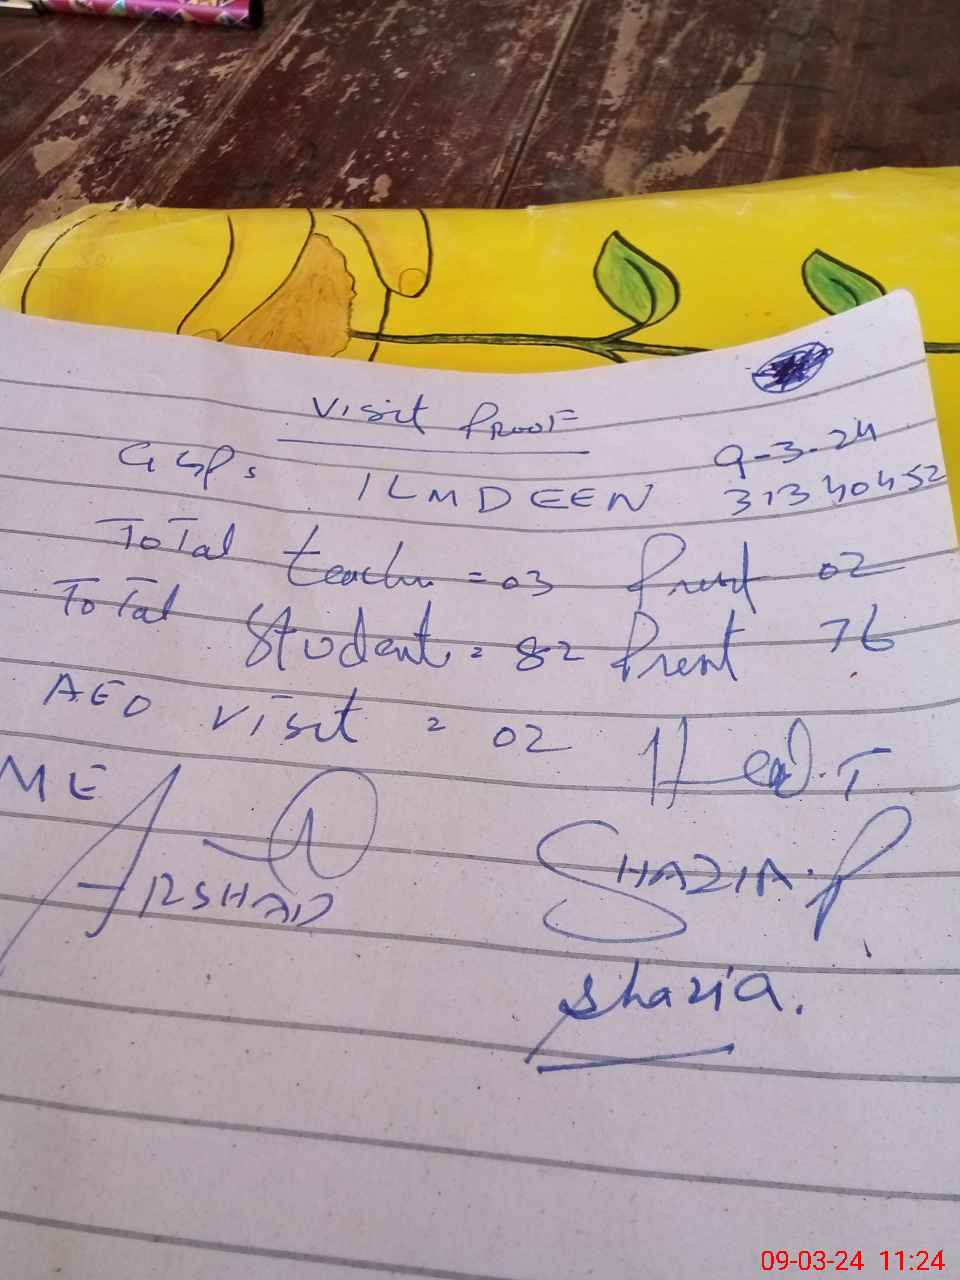 Visit Proof
GGPS ILMDEEN 9-3-24
31340452
Total teacher = 03 Present 02
Total Student = 82 Present 76
AEO visit = 02
Head.T
ME
IRSHAD
SHAZIA.P
Shazia.
09-03-24 11:24